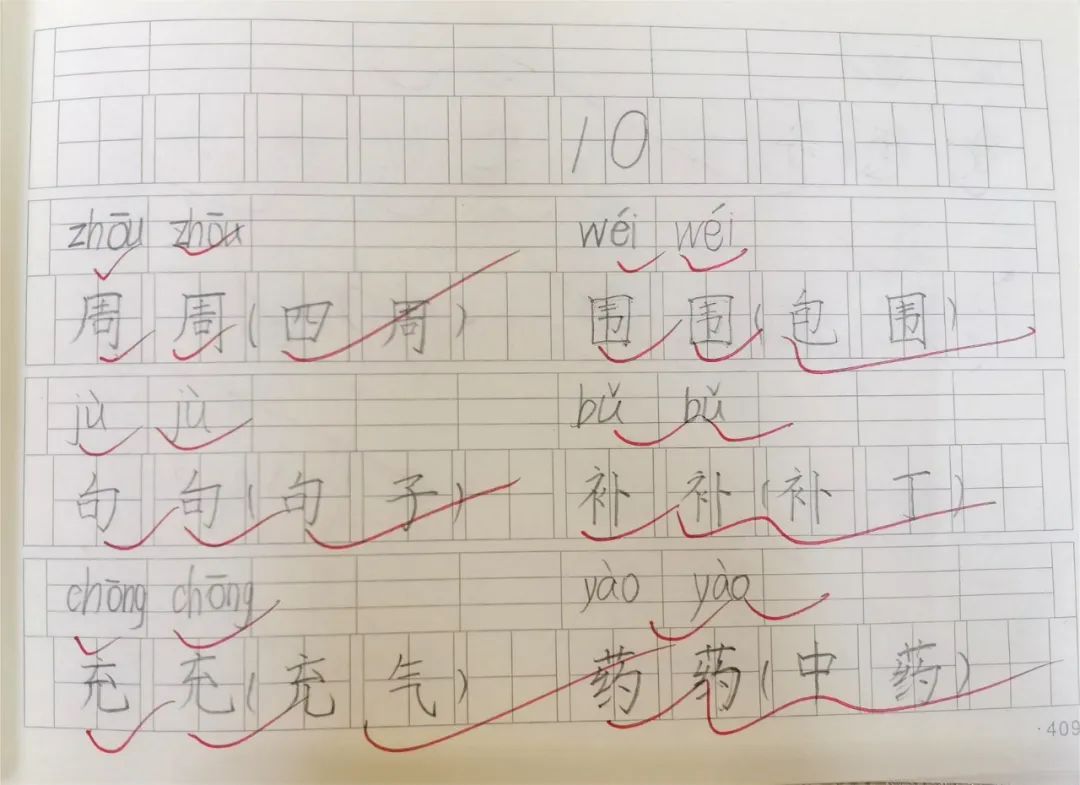 10
zhōu zhōu wéi wéi
周周(四周) 围围(包围)
jù jù bǔ bǔ
句句(句子) 补补(补丁)
chōng chōng yào yào
充充(充气) 药药(中药)
·409